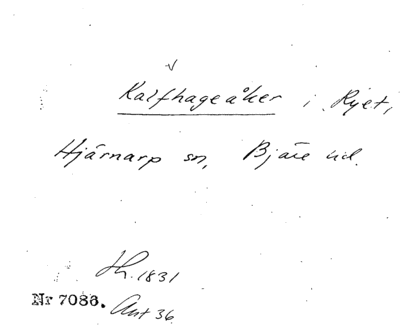 Kalfhageåker i Ryet,
Hjärnarp sn, Bjäre hd.
Lh. 1831
Nr 7086. Ant 36